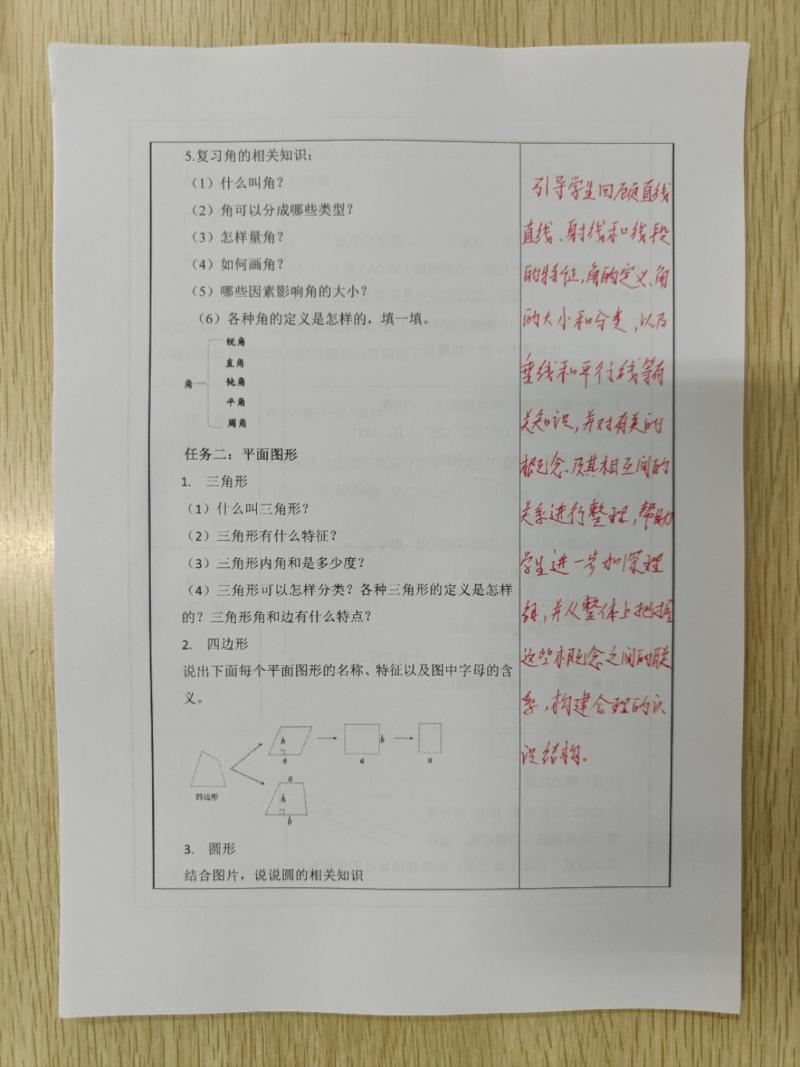 5.复习角的相关知识：
（1）什么叫角？
（2）角可以分成哪些类型？
（3）怎样量角？
（4）如何画角？
（5）哪些因素影响角的大小？
（6）各种角的定义是怎样的，填一填。
锐角
直角
角
钝角
平角
周角
任务二：平面图形
1. 三角形
（1）什么叫三角形？
（2）三角形有什么特征？
（3）三角形内角和是多少度？
（4）三角形可以怎样分类？各种三角形的定义是怎样
的？三角形角和边有什么特点？
2. 四边形
说出下面每个平面图形的名称、特征以及图中字母的含
义。
h
a
b
a
a
四边形
a
h
b
3. 圆形
结合图片，说说圆的相关知识
引导学生回顾直线
直线、射线和线段
的特征，角的定义、角
的大小和分类，以及
垂线和平行线等有
关知识，并对有关的
概念及其相互间的
关系进行整理，帮助
学生进一步加深理
解，并从整体上把握
这些概念之间的联
系，构建合理的认
识结构。